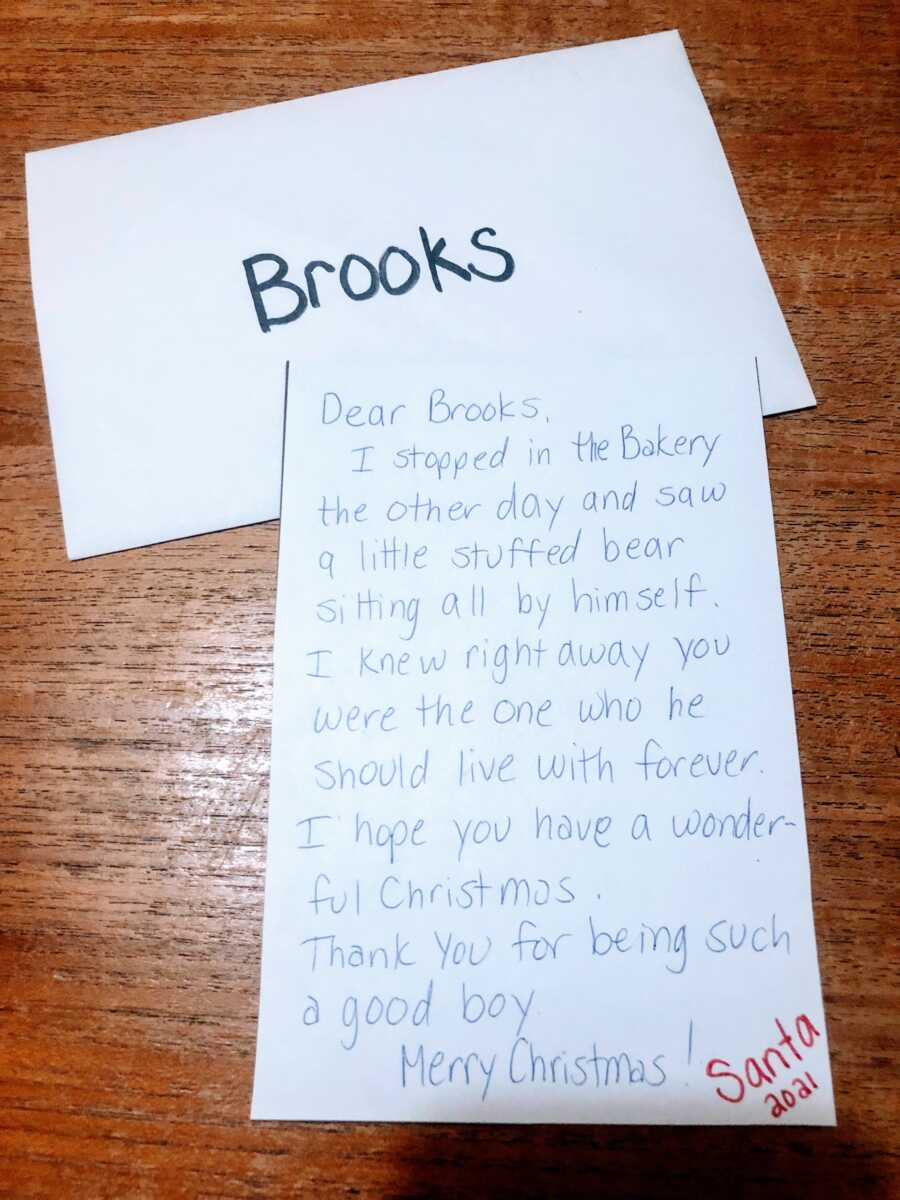 Brooks
Dear Brooks,
I stopped in the Bakery
the other day and saw
a little stuffed bear
sitting all by himself.
I knew right away you
were the one who he
should live with forever.
I hope you have a wonder-
ful Christmas.
Thank You for being such
a good boy
Merry Christmas!
Santa
2021